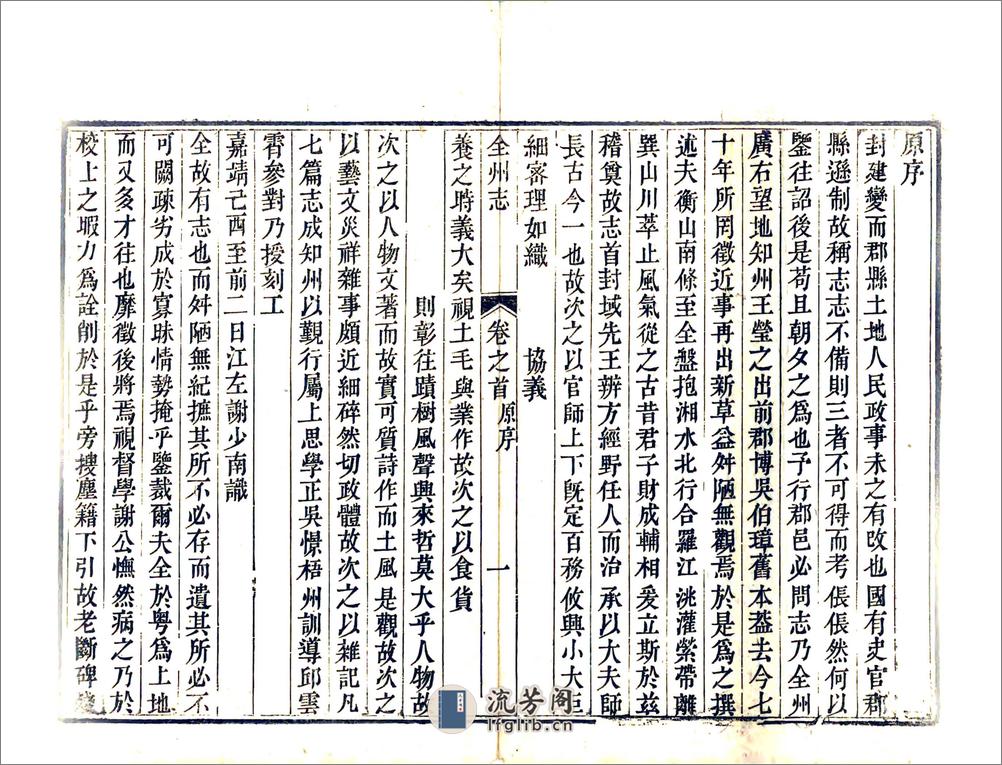 原序
封建變而郡縣土地人民政事未之有改也國有史官郡
縣遜制故稱志志不備則三者不可得而考倀倀然何以
鑒往詔後是苟且朝夕之為也予行郡邑必問志乃全州
廣右望地知州王瑩之出前郡博吳伯璋舊本葢去今七
十年所罔徵近事再出新草益舛陋無觀焉於是為之撰
述夫衡山南條至全盤抱湘水北行合羅江洮灌縈帶離
巽山川萃止風氣從之古昔君子財成輔相爰立斯於茲
稽奠故志首封域先王辨方經野任人而治承以大夫師
長古今一也故次之以官師上下旣定百務攸興小大臣
細密理如織 協義
全州志 卷之首 原序 一
養之時義大矣視土毛與業作故次之以食貨
則彰往蹟樹風聲興來哲莫大乎人物故
次之以人物文著而故實可質詩作而土風是觀故次之
以藝文災祥雜事頗近細碎然切政體故次之以雜記凡
七篇志成知州以觀行屬上思學正吳憬梧州訓導邱雲
霄參對乃授刻工
嘉靖己酉至前二日江左謝少南識
全故有志也而舛陋無紀摭其所不必存而遺其所必不
可闕疎劣成於寡昧情勢掩乎鑒裁爾夫全於粵為上地
而又多才往也靡徵後將焉視督學謝公憮然病之乃於
校上之暇力為詮削於是乎旁搜塵籍下引故老斷碑
流芳阁
lfglib.cn